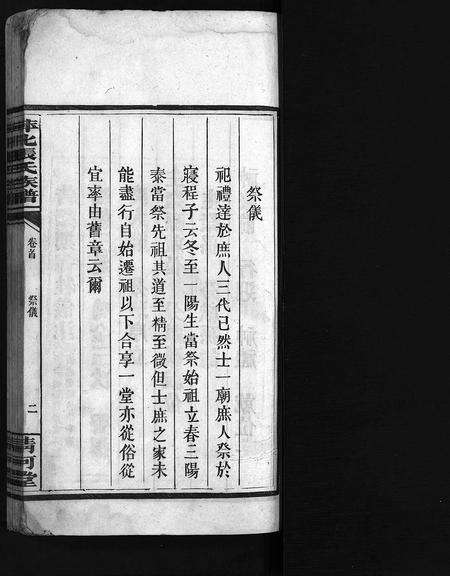 祭儀
祀禮達於庶人三代已然士一廟庶人祭於
寢程子云冬至一陽生當祭始祖立春三陽
泰當祭先祖其道至精至微但士庶之家未
能盡行自始遷祖以下合享一堂亦從俗從
宜率由舊章云爾
北張氏族譜
卷首
祭儀
二
清河堂